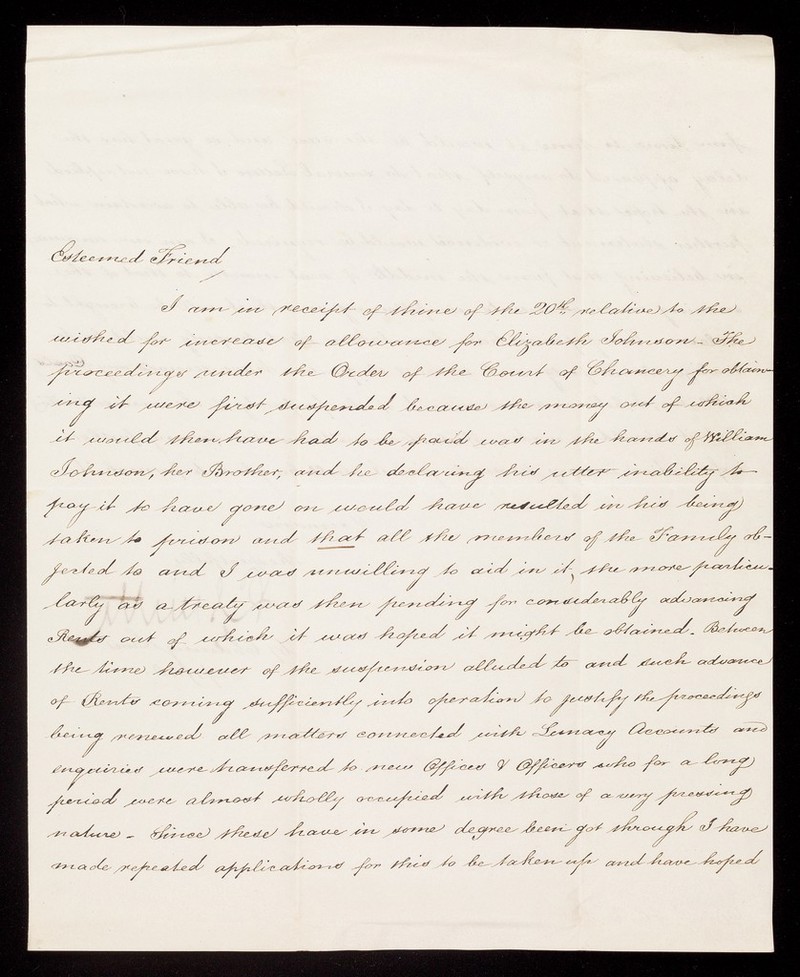 Esteemed Friend
I am in receipt of thine of the 20th relative to the
wished for increase of allowance for Elizabeth Johnson - The
proceedings under the Order of the Court of Chancery for obtain-
ing it were first suspended because the money out of which
it would then have had to be paid was in the hands of William
Johnson, her Brother, and he declaring his utter inability to
pay it to have gone on would have resulted in his being
taken to prison and that all the members of the Family ob-
jected to and I was unwilling to aid in it, the more particu-
larly as a treaty was then pending for considerably advancing
Rents out of which it was hoped it might be obtained. Between
the time however of the suspension alluded to and such advance
of Rents coming sufficiently into operation to justify the proceedings
being renewed all matters connected with Lunacy Accounts and
enquiries were transferred to new Offices & Officers who for a long
period were almost wholly occupied with those of a very pressing
nature - Since these have in some degree been got through I have
made repeated applications for this to be taken up and have hoped